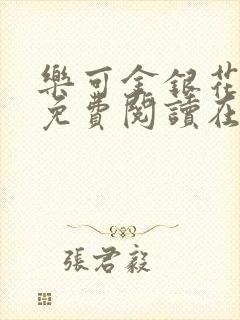 樂可金銀花
免費閱讀在
張君毅